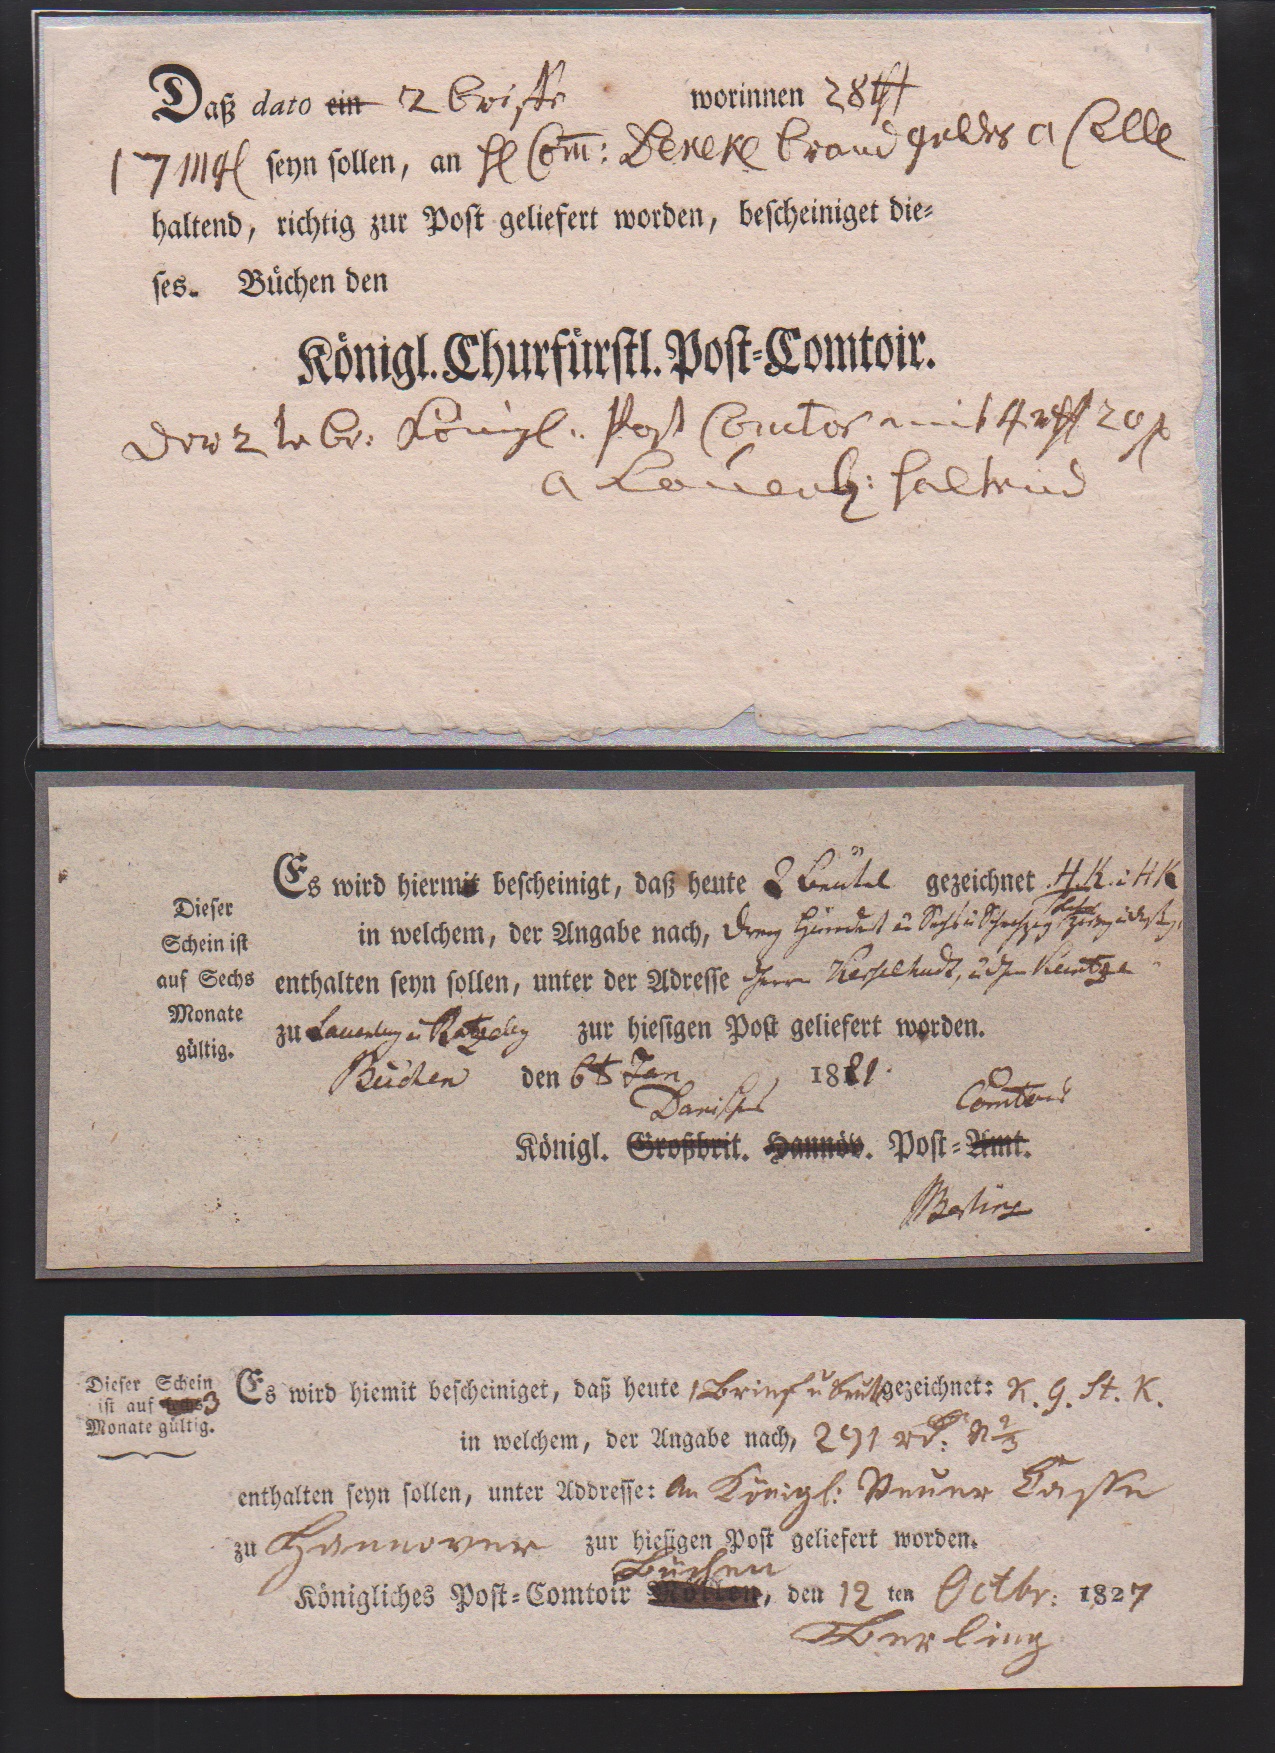 Daß dato ein 2 Briefe worinnen 28
17 mgl seyn sollen, an H Com̅: Deneke brand geldes a Celle
haltend, richtig zur Post geliefert worden, bescheiniget die=
ses. Büchen den
Königl. Churfürstl. Post=Comtoir.
Der 2te br: Königl. Post Comtor mit 4 20
a Lauenb: haltend
Dieser
Schein ist
auf Sechs
Monate
gültig.
Es wird hiermit bescheinigt, daß heute 2 Beutel gezeichnet H.K. u HK
in welchem, der Angabe nach, Drey Hundert u Sechs u Sechzig
enthalten seyn sollen, unter der Adresse Herrn
zu Lauenbg u Ratzebg zur hiesigen Post geliefert worden.
Büchen den 6t Jan 1821.
Danisches Comtoir
Königl. Großbrit. Hannöv. Post=Amt.
Berling
Dieser Schein
ist auf sechs 3
Monate gültig.
Es wird hiemit bescheiniget, daß heute 1 Brief u Beutel gezeichnet: K. G. St. K.
in welchem, der Angabe nach, 291 N 2/3
enthalten seyn sollen, unter Addresse: An Königl: Steuer Casse
zu Hannover zur hiesigen Post geliefert worden.
Büchen
Königliches Post=Comtoir Möllen, den 12 ten Octbr: 1827
Berling